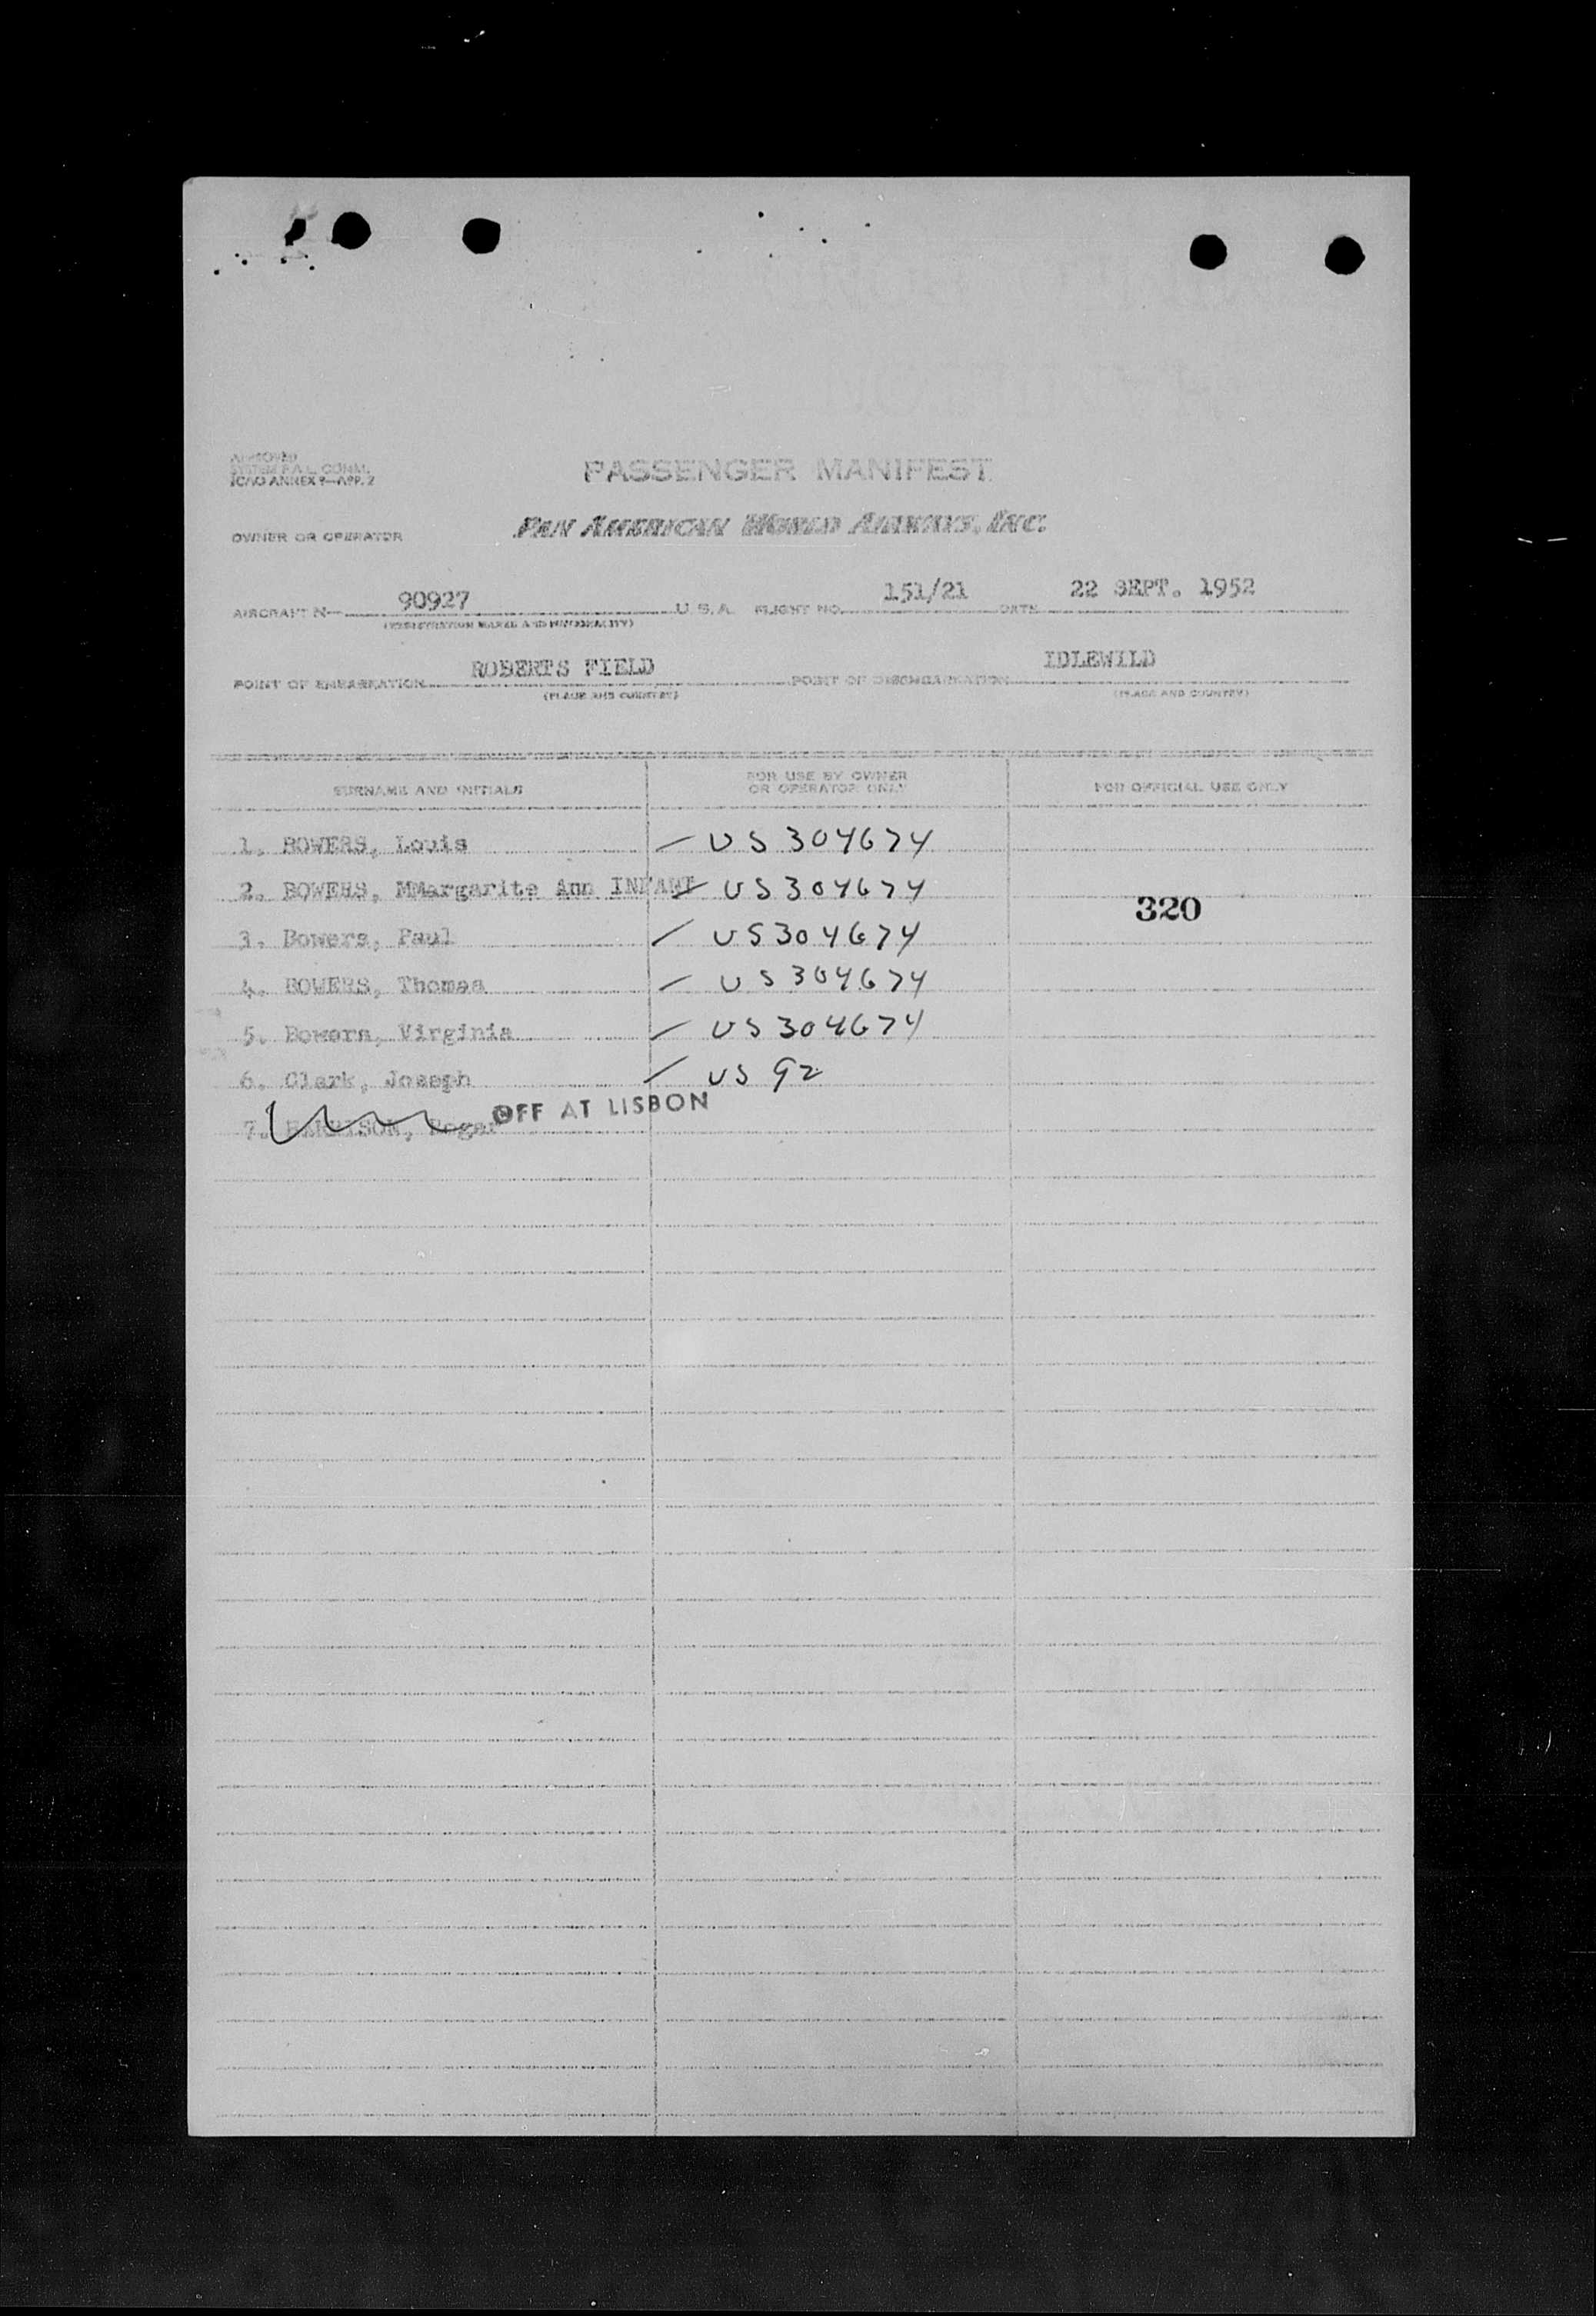 APPROVED
SYSTEM F.A.L. COMM.
ICAO ANNEX 9—APP. 2
PASSENGER MANIFEST
OWNER OR OPERATOR PAN AMERICAN WORLD AIRWAYS, INC.
AIRCRAFT N— 90927 U.S.A. FLIGHT NO. 151/21 DATE 22 SEPT. 1952
(REGISTRATION MARKS AND NATIONALITY)
POINT OF EMBARKATION ROBERTS FIELD POINT OF DISEMBARKATION IDLEWILD
(PLACE AND COUNTRY) (PLACE AND COUNTRY)
SURNAME AND INITIALS FOR USE BY OWNER OR OPERATOR ONLY FOR OFFICIAL USE ONLY
1. BOWERS, Louis — US 304674
2. BOWERS, MMargarite Ann INFANT — US 304674
320
3. Bowers, Paul — US 304674
4. BOWERS, Thomas — US 304674
5. Bowers, Virginia — US 304674
6. Clark, Joseph — US 92
OFF AT LISBON
7. HARRISON,